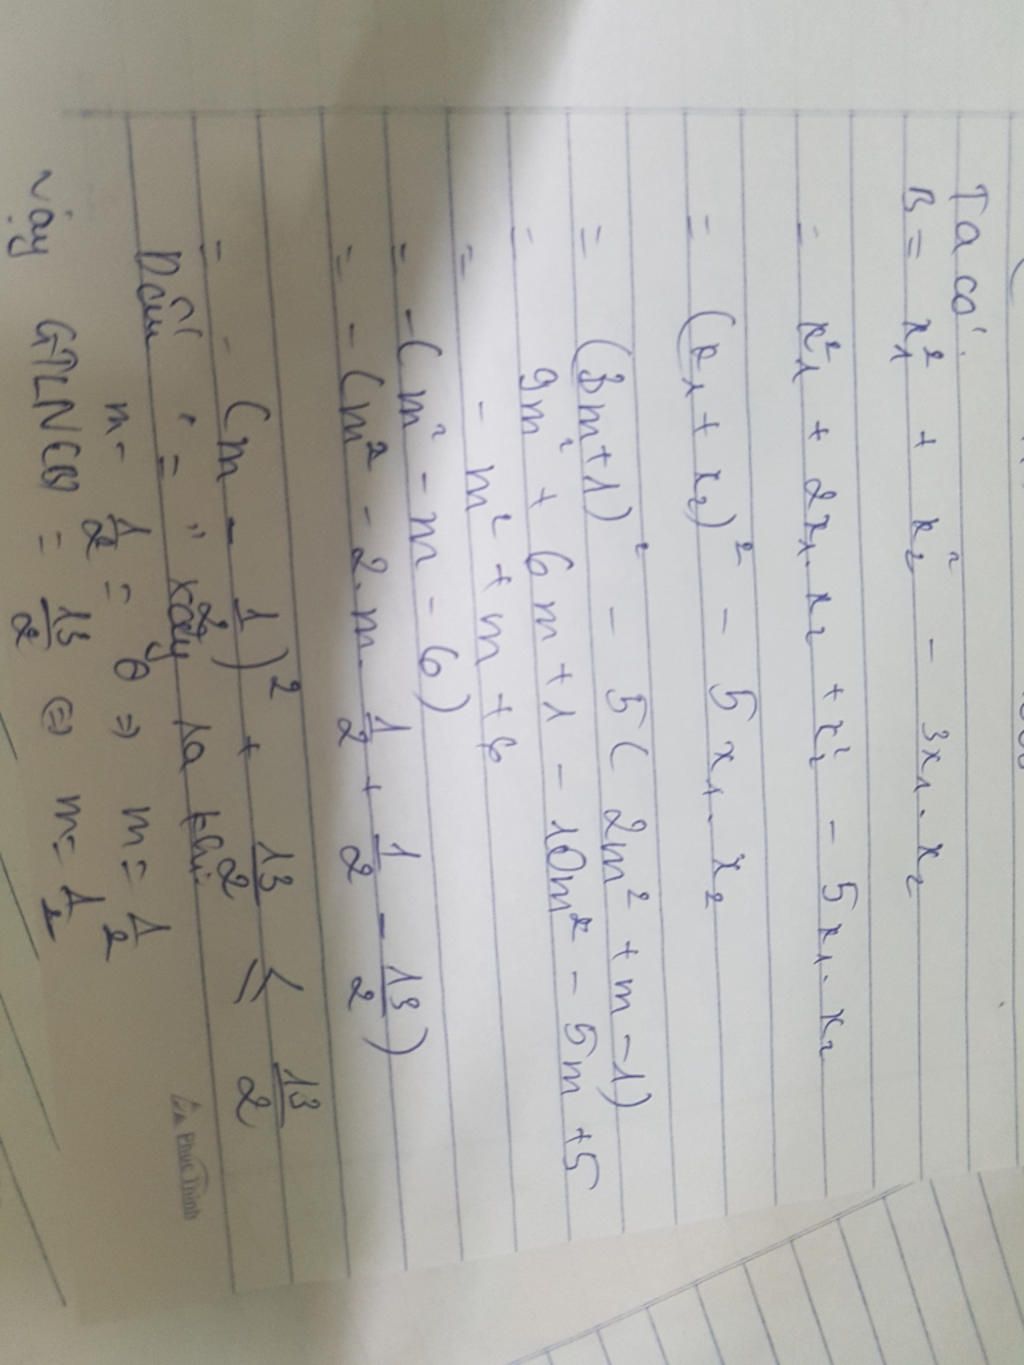 Ta có:
B = x₁² + x₂² - 3x₁.x₂
= x₁² + 2x₁.x₂ + x₂² - 5x₁.x₂
= (x₁ + x₂)² - 5x₁.x₂
= (3m+1)² - 5(2m² + m - 1)
= 9m² + 6m + 1 - 10m² - 5m + 5
= - m² + m + 6
= -(m² - m - 6)
= -(m² - 2.m.1/2 + 1/2 - 13/2)
= -(m - 1/2)² + 13/2 ≤ 13/2
Dấu "=" xảy ra khi
m - 1/2 = 0 ⇒ m = 1/2
Vậy GTLN(B) = 13/2 ⇔ m = 1/2
Phúc Thịnh